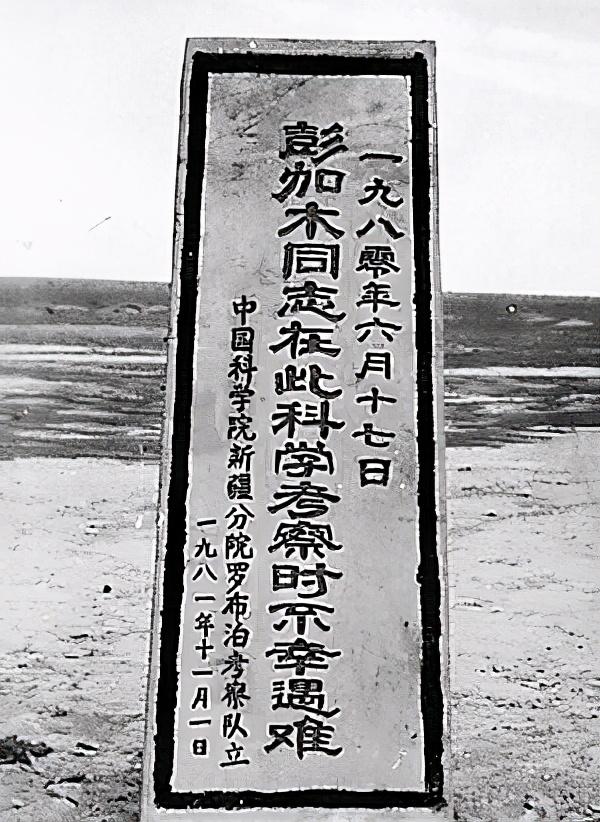 一九八零年六月十七日
彭加木同志在此科学考察时不幸遇难
中国科学院新疆分院罗布泊考察队立
一九八一年十一月一日